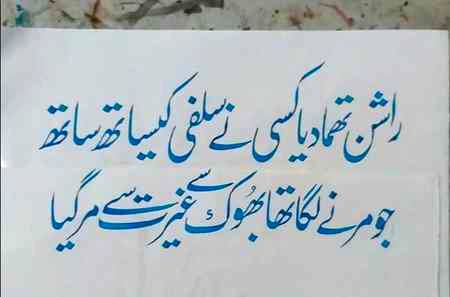 راشن تھما دیا کسی نے سلفی کیساتھ ساتھ
جو مرنے لگا تھا بھُوک سے غیرت سے مر گیا